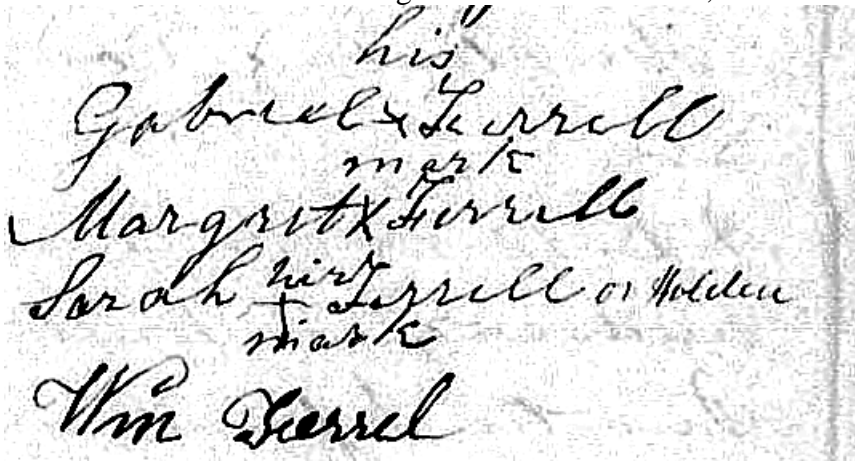 his
Gabriel x Ferrell
mark
Margret X Ferrell
Sarah her + Ferrell or Holden
mark
Wm Ferrel